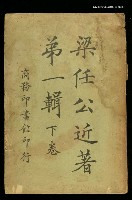 梁任公近著
第一輯 下卷
商務印書館印行